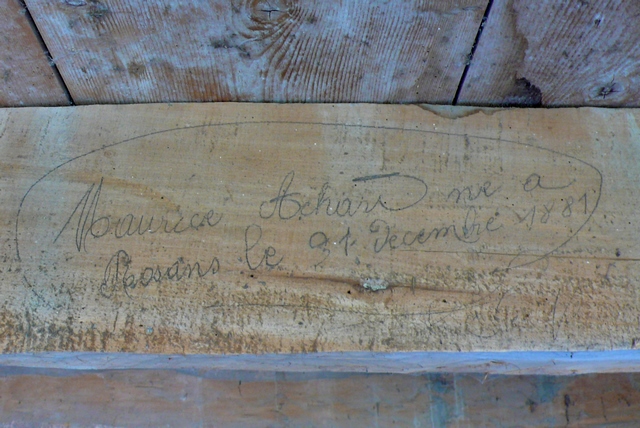 Maurice Achard ne a
Prosans le 31 Decembre 1881